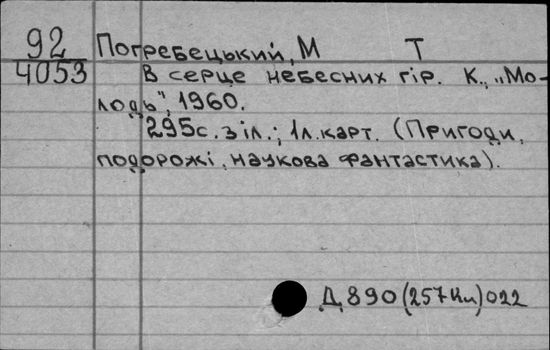 92 Погребецький, М Т
4053 В серце небесних гір. К., „Мо-
лодь", 1960.
295с. з іл.; 1л.карт. (Пригоди,
подорожі, наукова фантастика).
Д 890(257Ки)022